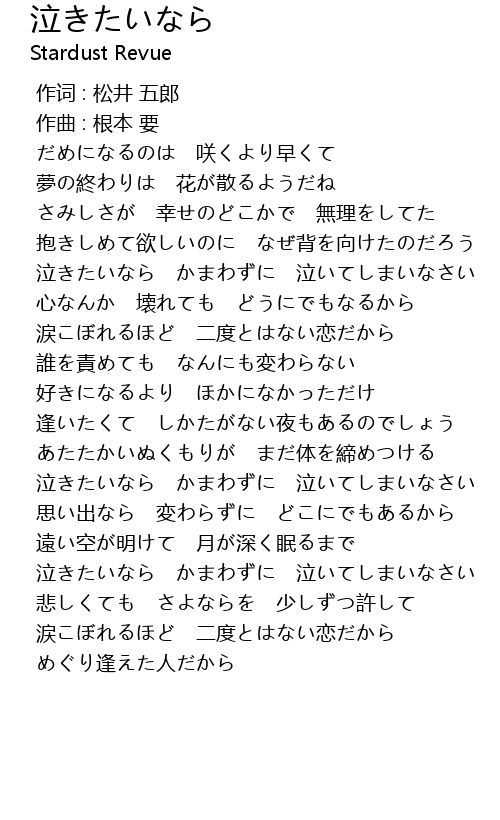 泣きたいなら
Stardust Revue
作词 : 松井 五郎
作曲 : 根本 要
だめになるのは　咲くより早くて
夢の終わりは　花が散るようだね
さみしさが　幸せのどこかで　無理をしてた
抱きしめて欲しいのに　なぜ背を向けたのだろう
泣きたいなら　かまわずに　泣いてしまいなさい
心なんか　壊れても　どうにでもなるから
涙こぼれるほど　二度とはない恋だから
誰を責めても　なんにも変わらない
好きになるより　ほかになかっただけ
逢いたくて　しかたがない夜もあるのでしょう
あたたかいぬくもりが　まだ体を締めつける
泣きたいなら　かまわずに　泣いてしまいなさい
思い出なら　変わらずに　どこにでもあるから
遠い空が明けて　月が深く眠るまで
泣きたいなら　かまわずに　泣いてしまいなさい
悲しくても　さよならを　少しずつ許して
涙こぼれるほど　二度とはない恋だから
めぐり逢えた人だから